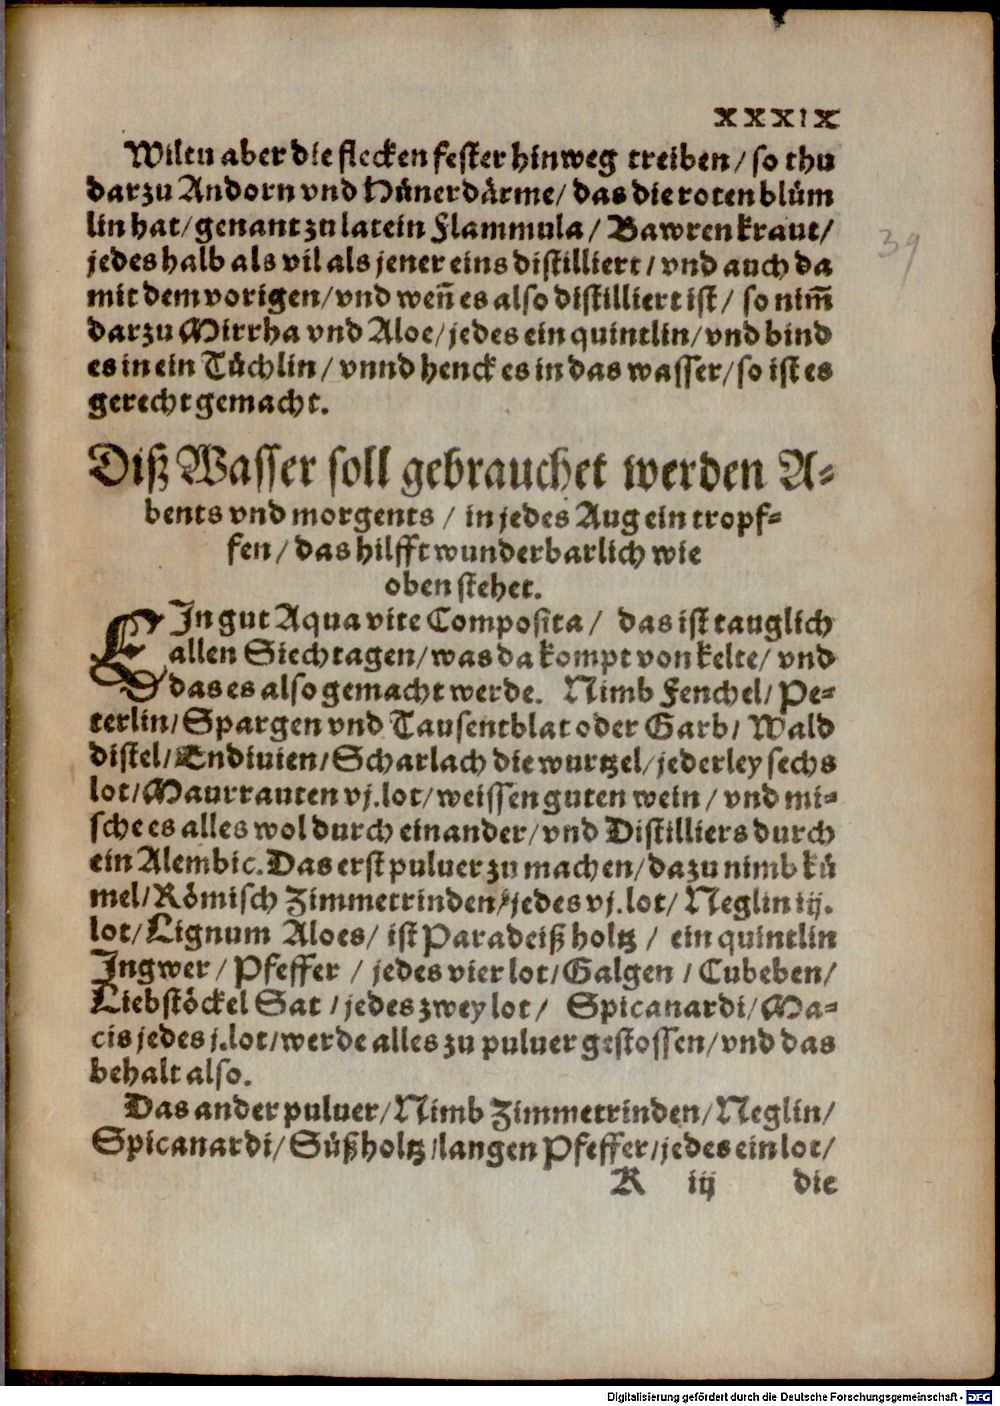 XXXIX
Wiltu aber die flecken fester hinweg treiben/ so thu
darzu Andorn vnd Hünerdärme/ das die roten blüm
lin hat/ genant zu latein Flammula/ Bawren kraut/
jedes halb als vil als jener eins distilliert/ vnd auch da
mit dem vorigen/ vnd weñ es also distilliert ist/ so nim̃
darzu Mirrha vnd Aloe/ jedes ein quintlin/ vnd bind
es in ein Tüchlin/ vnnd henck es in das wasser/ so ist es
gerecht gemacht.
39
Diß Wasser soll gebrauchet werden A-
bents vnd morgents / in jedes Aug ein tropf-
fen/ das hilfft wunderbarlich wie
oben stehet.
EIn gut Aqua vite Composita/ das ist tauglich
allen Siechtagen/ was da kompt von kelte/ vnd
das es also gemacht werde. Nimb Fenchel/ Pe-
terlin/ Spargen vnd Tausentblat oder Garb/ Wald
distel/ Endiuien/ Scharlach die wurtzel/ jederley sechs
lot/ Maurrauten vj.lot/ weissen guten wein / vnd mi-
sche es alles wol durch einander/ vnd Distilliers durch
ein Alembic. Das erst puluer zu machen/ dazu nimb kü
mel/ Römisch Zimmetrinden/ jedes vj.lot/ Neglin iij.
lot/ Lignum Aloes/ ist Paradeiß holtz / ein quintlin
Ingwer/ Pfeffer / jedes vier lot/ Galgen / Cubeben/
Liebstöckel Sat / jedes zwey lot/ Spicanardi/ Ma-
cis jedes j.lot/ werde alles zu puluer gestossen/ vnd das
behalt also.
Das ander puluer/ Nimb Zimmetrinden/ Neglin/
Spicanardi/ Süßholtz/ langen Pfeffer/ jedes ein lot/
K iij die
Digitalisierung gefördert durch die Deutsche Forschungsgemeinschaft - DFG